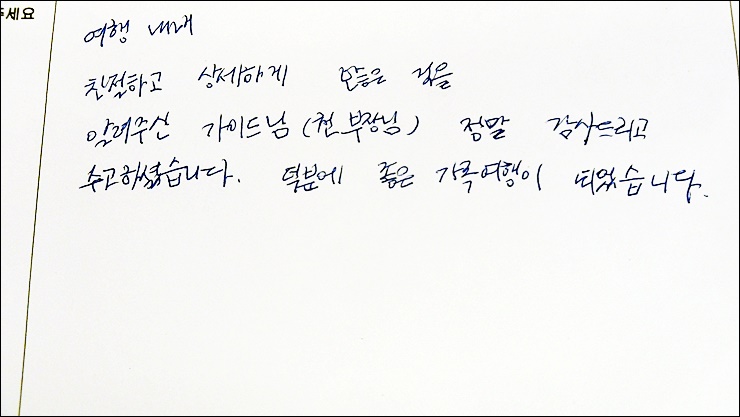 주세요
여행 내내
친절하고 상세하게 모든 것을
알려주신 가이드님(천 부장님) 정말 감사드리고
수고하셨습니다. 덕분에 좋은 가족여행이 되었습니다.